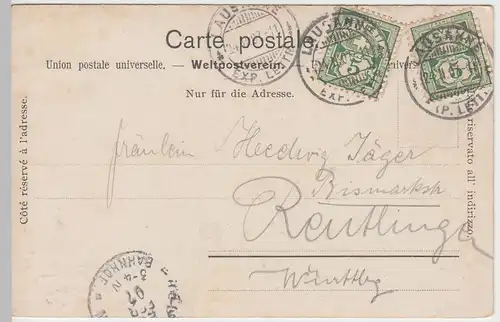 Carte postale.
Union postale universelle. — Weltpostverein.
Nur für die Adresse.
Côté réservé à l'adresse.
riservato all' indirizzo.
LAUSANNE
EXP. LETTR.
LAUSANNE
5
EXP.
LAUSANNE
5
EXP. LETT.
Fräulein Hedwig Jäger
Bismarckstr
Reutlingen
Württbg
BAHNHOF
3-4 N
97